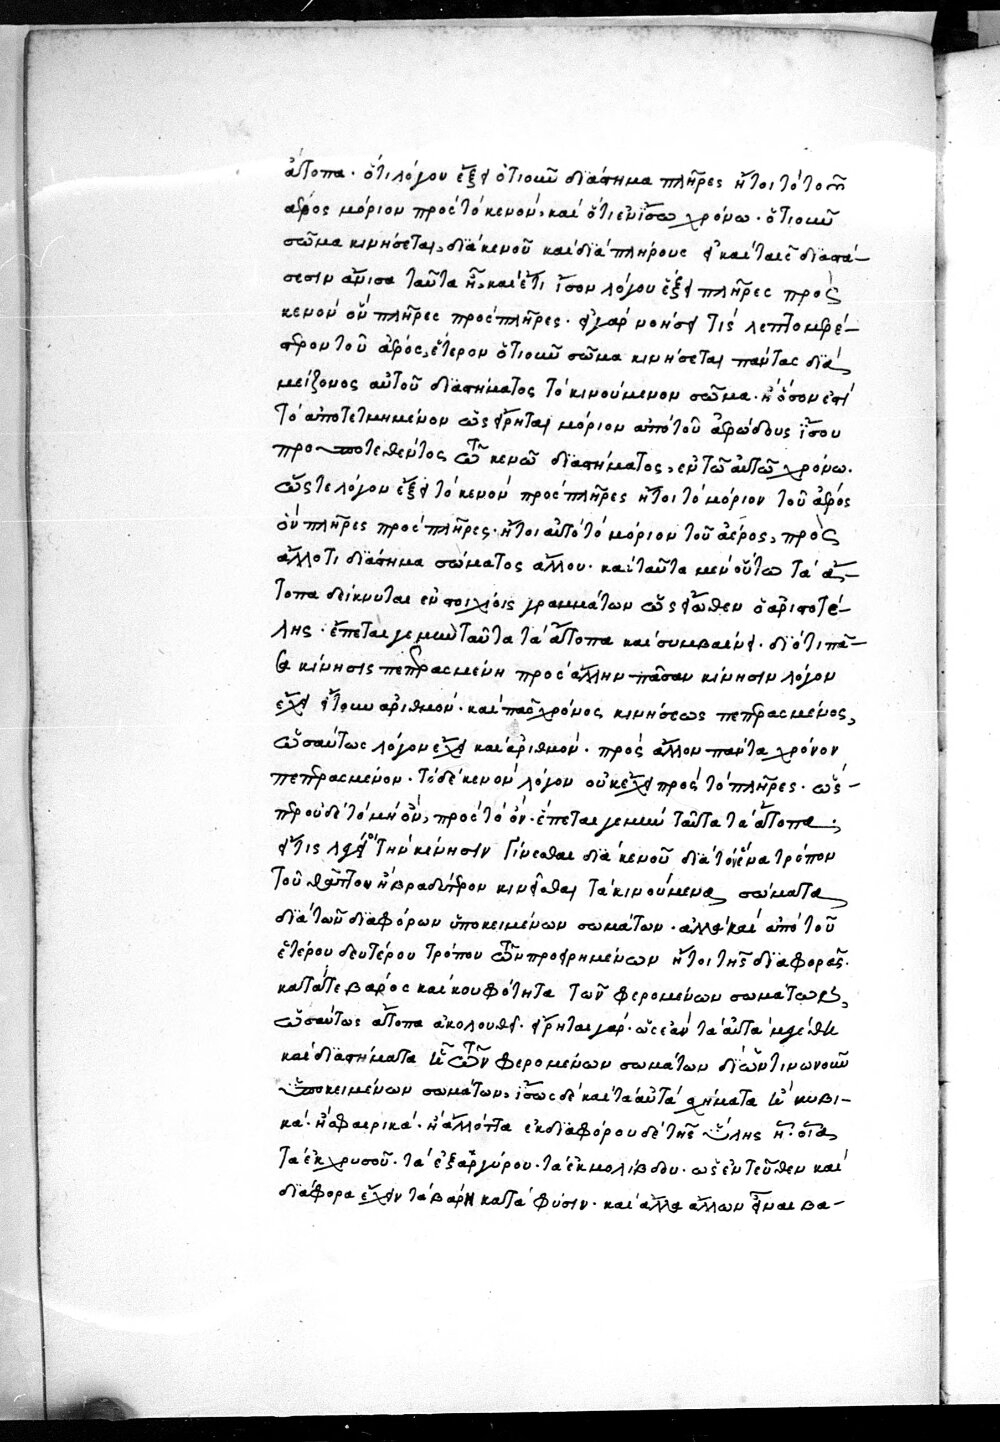 ἄτοπα· ὅτι λόγον ἕξει ὁτιοῦν διάστημα πλῆρες ἤτοι τὸ τοῦ
ἀέρος μόριον πρὸς τὸ κενόν, καὶ ὅτι ἐν ἴσω χρόνω· ὁτιοῦν
σῶμα κινήσεται, διὰ κενοῦ καὶ διὰ πλήρους εἰ καὶ ταῖς διαστά-
σεσιν ἄνισα ταῦτα ἦ, καὶ ἔτι ἴσον λόγον ἕξει πλῆρες πρὸς
κενὸν ὃν πλῆρες πρὸς πλῆρες· εἰ γὰρ νοήσει τὶς λεπτομερέ-
στερον τοῦ ἀέρος, ἕτερον ὁτιοῦν σῶμα κινήσεται πάντας διὰ
μείζονος αὐτοῦ διαστήματος τὸ κινούμενον σῶμα· ἢ ὅσον ἐστὶ
τὸ ἀποτετμημένον ὡς εἴρηται μόριον ἀπὸ τοῦ ἀερώδους ἴσου
προϋποτεθέντος τῶ κενῶ διαστήματος, ἐν τῶ αὐτῶ χρόνω.
ὥστε λόγον ἕξει τὸ κενὸν πρὸς πλῆρες ἤτοι τὸ μόριον τοῦ ἀέρος
ὃν πλῆρες πρὸς πλῆρες· ἤτοι αὐτὸ τὸ μόριον τοῦ ἀέρος, πρὸς
ἄλλό τι διάστημα σώματος ἄλλου· καὶ ταῦτα μὲν οὕτω τὰ ἄ-
τοπα δείκνυται ἐν στοιχείοις γραμμάτων ὡς εἴωθεν ὁ ἀριστοτέ-
λης· ἕπεται γε μὴν ταῦτα τὰ ἄτοπα καὶ συμβαίνει· διότι πᾶ-
σα κίνησις πεπερασμένη πρὸς ἄλλην πᾶσαν κίνησιν λόγον
ἔχει εἴτουν ἀριθμόν· καὶ πᾶς χρόνος κινήσεως πεπερασμένος,
ὡσαύτως λόγον ἔχει καὶ ἀριθμόν· πρὸς ἄλλον πάντα χρόνον
πεπερασμένον· τὸ δὲ κενὸν λόγον οὐκ ἔχει πρὸς τὸ πλῆρες· ὥσ-
περ οὐδὲ τὸ μὴ ὄν, πρὸς τὸ ὄν· ἕπεται γε μὴν ταῦτα τὰ ἄτοπα·
εἴ τις λέγει τὴν κίνησιν γίνεσθαι διὰ κενοῦ διὰ τὸν ἕνα τρόπον
τοῦ θᾶττον ἢ βραδύτερον κινεῖσθαι τὰ κινούμενα σώματα
διὰ τῶν διαφόρων ὑποκειμένων σωμάτων· ἀλλὰ καὶ ἀπὸ τοῦ
ἑτέρου δευτέρου τρόπου τῶν προειρημένων ἤτοι τῆς διαφορᾶς·
κατά τε βάρος καὶ κουφότητα τῶν φερομένων σωμάτων,
ὡσαύτως ἄτοπα ἀκολουθεῖ· εἴρηται γὰρ· ὡς ἐὰν τὰ αὐτὰ μεγέθη
καὶ διαστήματα ἦ τῶν φερομένων σωμάτων δι' ὧντινωνοῦν
ὑποκειμένων σωμάτων, ἴσως δὲ καὶ τὰ αὐτὰ σχήματα ἢ κυβι-
κὰ· ἢ σφαιρικὰ· ἢ ἀλλότια ἐκ διαφόρου δὲ τῆς ὕλης ἦ· οἷα
τὰ ἐκ χρυσοῦ· τὰ ἐξ ἀργύρου· τὰ ἐκ μολίβδου· ὡς ἐντεῦθεν καὶ
διάφορα ἔχειν τὰ βάρη κατὰ φύσιν· καὶ ἄλλα ἄλλων εἶναι βα-